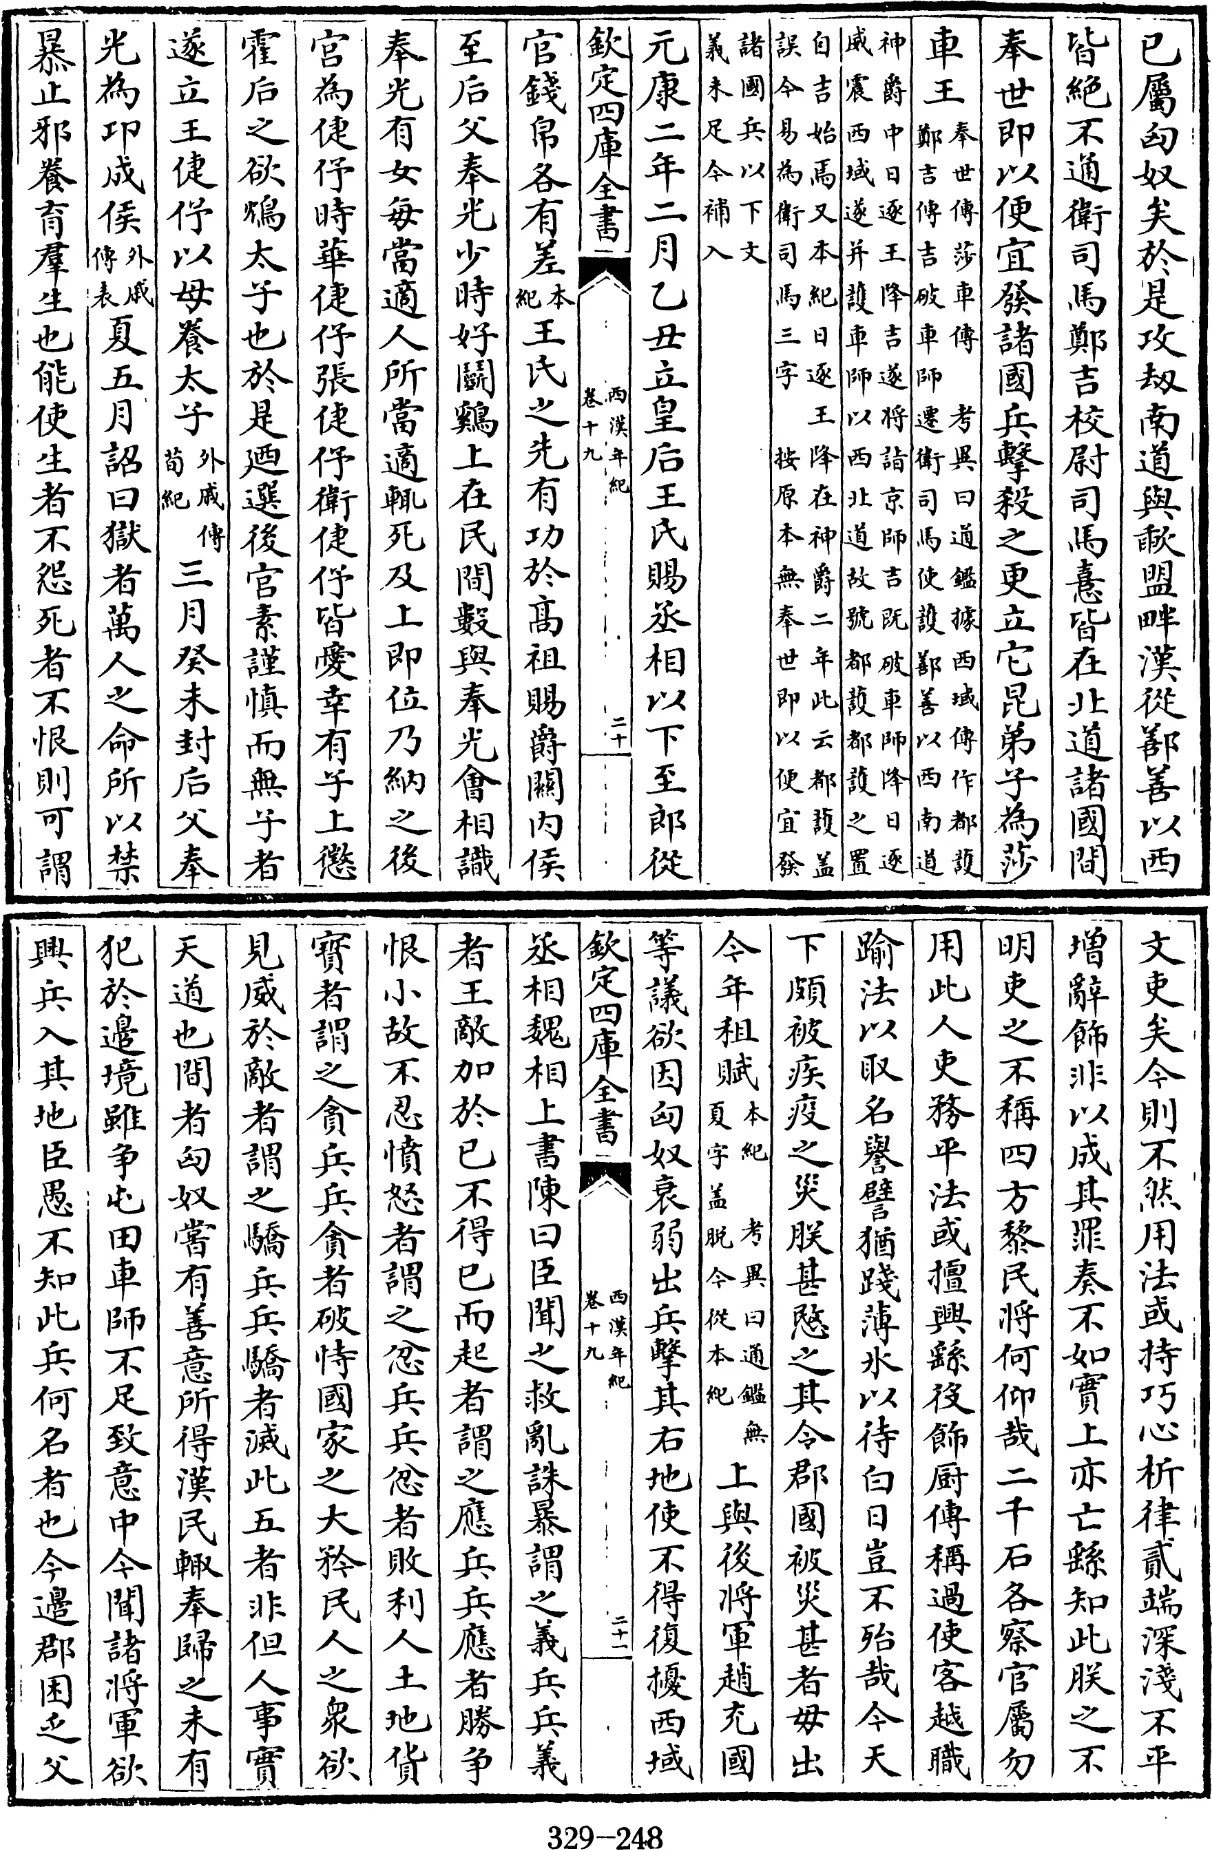 已屬匈奴矣於是攻刼南道與歃盟畔漢從鄯善以西
皆絶不通衛司馬鄭吉校尉司馬憙皆在北道諸國間
奉世即以便宜發諸國兵擊殺之更立它昆弟子為莎
車王
奉世傳莎車傳 考異曰通鑑據西域傳作都護
鄭吉傳吉破車師遷衛司馬使護鄯善以西南道
神爵中日逐王降吉遂将詣京師吉既破車師降日逐
威震西域遂并護車師以西北道故號都護都護之置
自吉始焉又本紀日逐王降在神爵二年此云都護盖
誤今易為衛司馬三字 按原本無奉世即以便宜發
諸國兵以下文
義未足今補入
元康二年二月乙丑立皇后王氏賜丞相以下至郎從
欽定四庫全書
西漢年紀
卷十九
二十
官錢帛各有差
本
紀
王氏之先有功於髙祖賜爵關内侯
至后父奉光少時好鬭鷄上在民間數與奉光會相識
奉光有女每當適人所當適輒死及上即位乃納之後
宫為倢伃時華倢伃張倢伃衛倢伃皆愛幸有子上懲
霍后之欲鴆太子也於是廼選後宫素謹慎而無子者
遂立王倢伃以母養太子
外戚傳
荀紀
三月癸未封后父奉
光為卭成侯
外戚
傳表
夏五月詔曰獄者萬人之命所以禁
暴止邪養育羣生也能使生者不怨死者不恨則可謂
文吏矣今則不然用法或持巧心析律貳端深淺不平
增辭飾非以成其罪奏不如實上亦亡繇知此朕之不
明吏之不稱四方黎民将何仰哉二千石各察官屬勿
用此人吏務平法或擅興繇役飾厨傳稱過使客越職
踰法以取名譽譬猶踐薄氷以待白日豈不殆哉今天
下頗被疾疫之災朕甚愍之其令郡國被災甚者毋出
今年租賦
本紀 考異曰通鑑無
夏字盖脱今從本紀
上與後将軍趙充國
等議欲因匈奴衰弱出兵擊其右地使不得復擾西域
欽定四庫全書
西漢年紀
卷十九
二十一
丞相魏相上書陳曰臣聞之救亂誅暴謂之義兵兵義
者王敵加於已不得已而起者謂之應兵兵應者勝争
恨小故不忍憤怒者謂之忿兵兵忿者敗利人土地貨
寳者謂之貪兵兵貪者破恃國家之大矜民人之衆欲
見威於敵者謂之驕兵兵驕者滅此五者非但人事實
天道也間者匈奴嘗有善意所得漢民輙奉歸之未有
犯於邉境雖争屯田車師不足致意中今聞諸将軍欲
興兵入其地臣愚不知此兵何名者也今邉郡困乏父
329-248